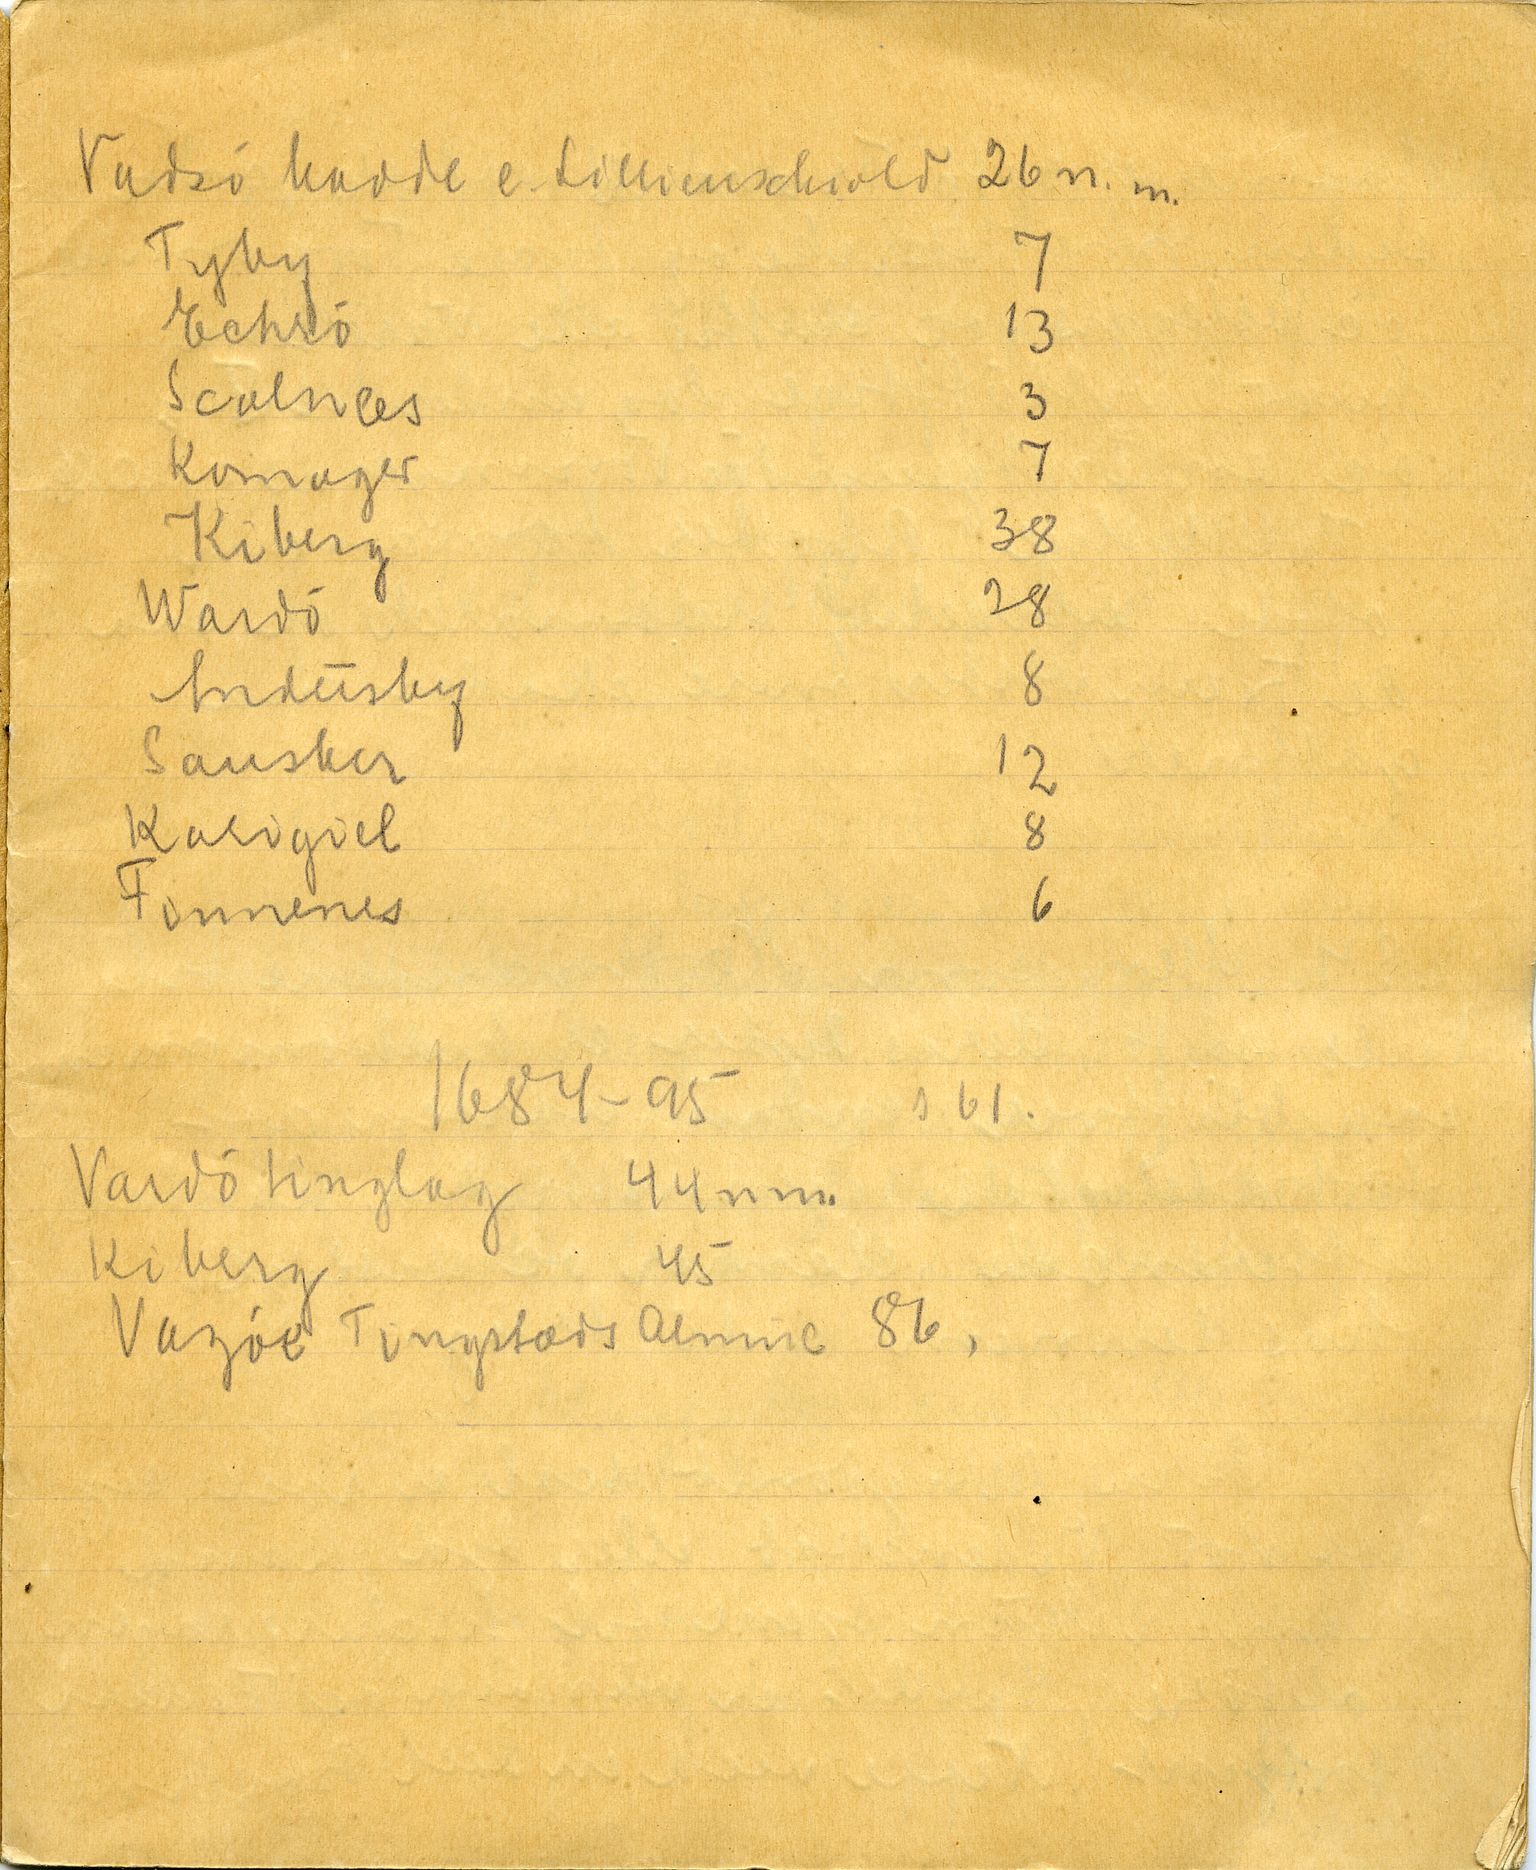 Vadsó hadde e. Lillienschiold 26 n. m.
Tyby 7
Echró 13
Scalnæs 3
Komager 7
Kiberg 38
Wardó 28
Andersby 8
Sausker 12
Karigiel 8
Finnenes 6
1684-95 s 61.
Vardó tinglag 44 nm.
Kiberg 45
Vazóe Tingstæds Almue 86,